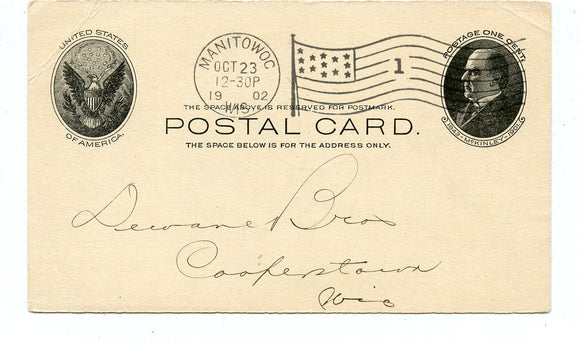 UNITED STATES
OF AMERICA.
MANITOWOC
OCT 23
12-30P
19 02
WIS.
1
POSTAGE ONE CENT.
1843-McKINLEY-1901.
THE SPACE ABOVE IS RESERVED FOR POSTMARK.
POSTAL CARD.
THE SPACE BELOW IS FOR THE ADDRESS ONLY.
Dewane Bros
Cooperstown
Wis